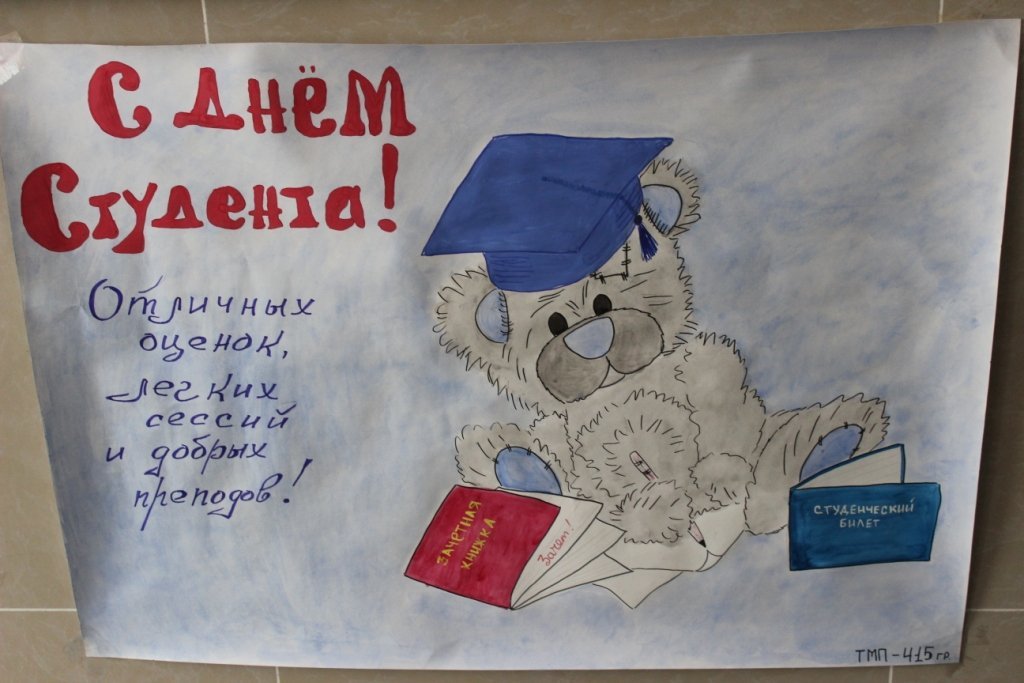 С Днём
Студента!
Отличных
оценок,
легких
сессий
и добрых
преподов!
ЗАЧЕТНАЯ
КНИЖКА
Зачет!
СТУДЕНЧЕСКИЙ
БИЛЕТ
ТМП-415 гр.